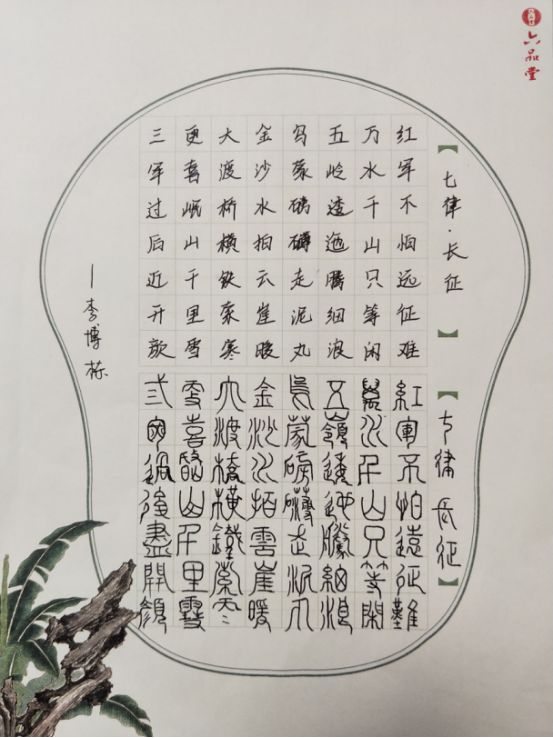 六品堂
【七律·长征】
红军不怕远征难
万水千山只等闲
五岭逶迤腾细浪
乌蒙磅礴走泥丸
金沙水拍云崖暖
大渡桥横铁索寒
更喜岷山千里雪
三军过后近开颜
—李博栋
【七律 長征】
紅軍不怕遠征難
萬水千山只等閑
五嶺逶迤騰細浪
烏蒙磅礴走泥丸
金沙水拍雲崖暖
大渡橋橫鐵索寒
雪喜岷山千里雪
弎軍過後盡開顏